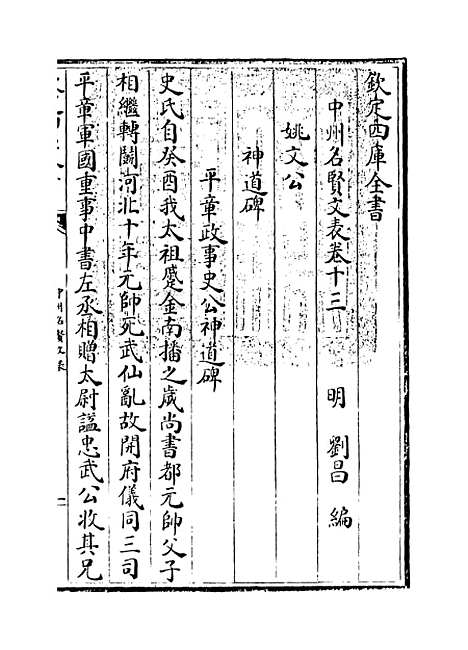 欽定四庫全書
中州名賢文表卷十三
明 劉昌 編
姚文公
神道碑
平章政事史公神道碑
史氏自癸酉我太祖蹙金南播之歲尚書都元帥父子
相繼轉鬬河北十年元帥死武仙亂故開府儀同三司
平章軍國重事中書左丞相贈太尉謚忠武公收其兄
中州名賢文表